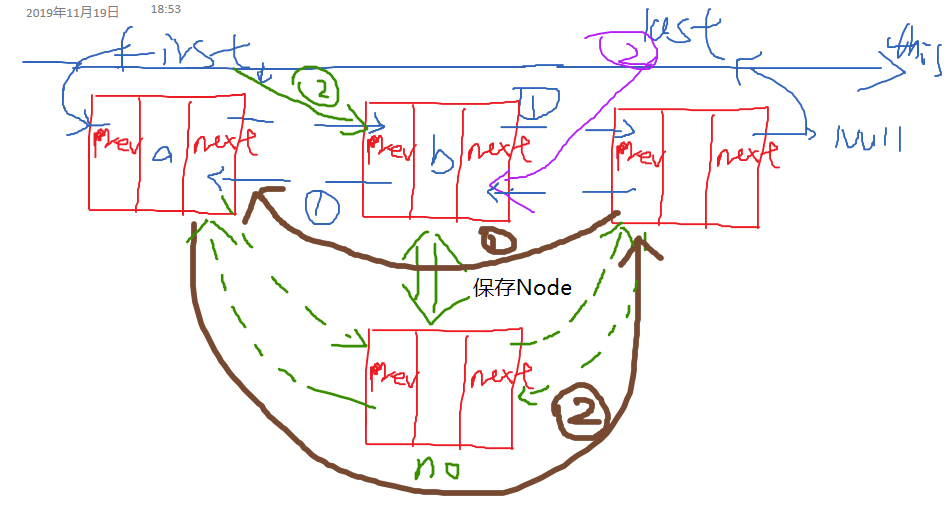 2019年11月19日 18:53
first
last
②
②
①
prev a next
prev b next
prev next
null
①
①
保存Node
prev next
②
no